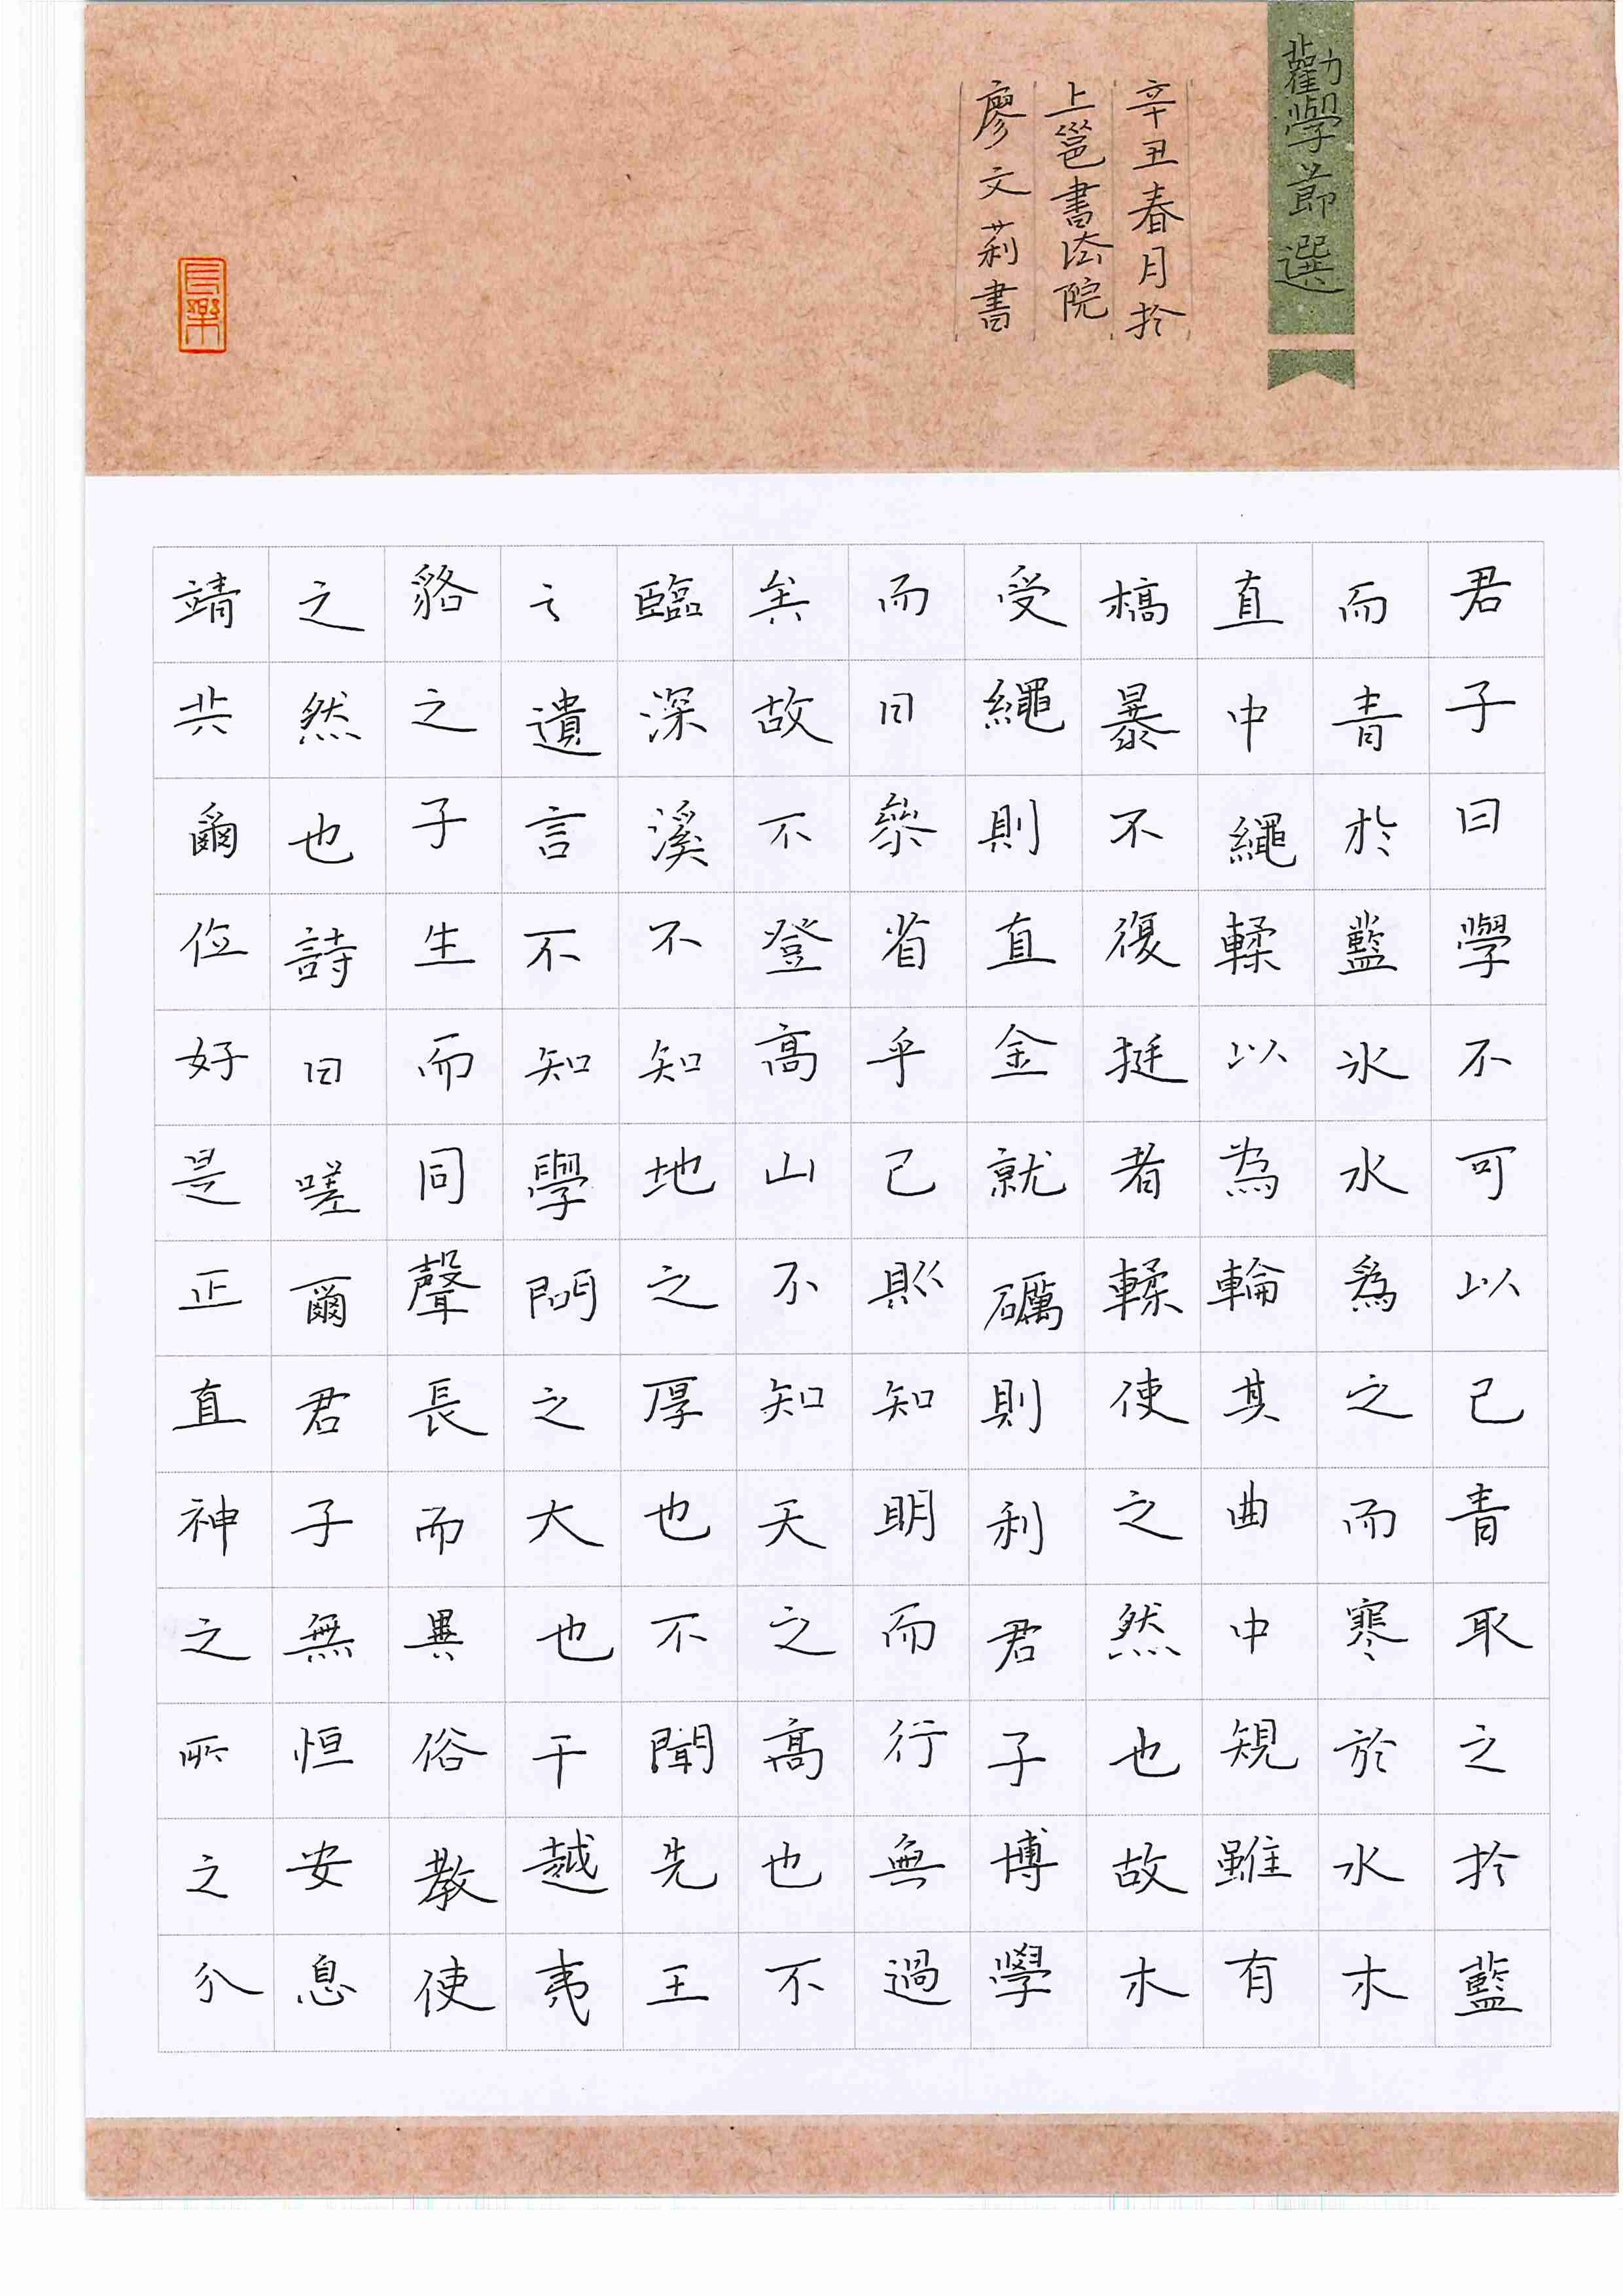 勸學節選
辛丑春月於
上邕書法院
廖文莉書
君子曰學不可以已青取之於藍
而青於藍冰水為之而寒於水木
直中繩輮以為輪其曲中規雖有
槁暴不復挺者輮使之然也故木
受繩則直金就礪則利君子博學
而日參省乎己則知明而行無過
矣故不登高山不知天之高也不
臨深溪不知地之厚也不聞先王
之遺言不知學問之大也干越夷
貉之子生而同聲長而異俗教使
之然也詩曰嗟爾君子無恒安息
靖共爾位好是正直神之所之介